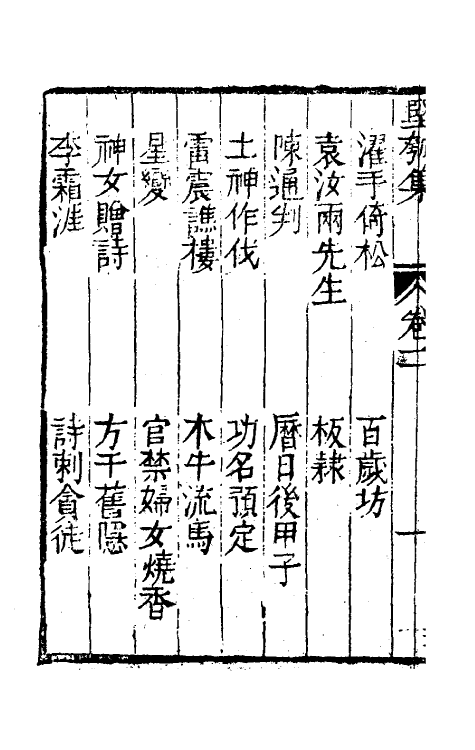 堅瓠集 卷一 一
濯手倚松 百歲坊
袁汝兩先生 板隸
陳通判 曆日後甲子
土神作伐 功名預定
雷震譙樓 木牛流馬
星變 官禁婦女燒香
神女贈詩 方干舊隱
李霜涯 詩刺貪徒